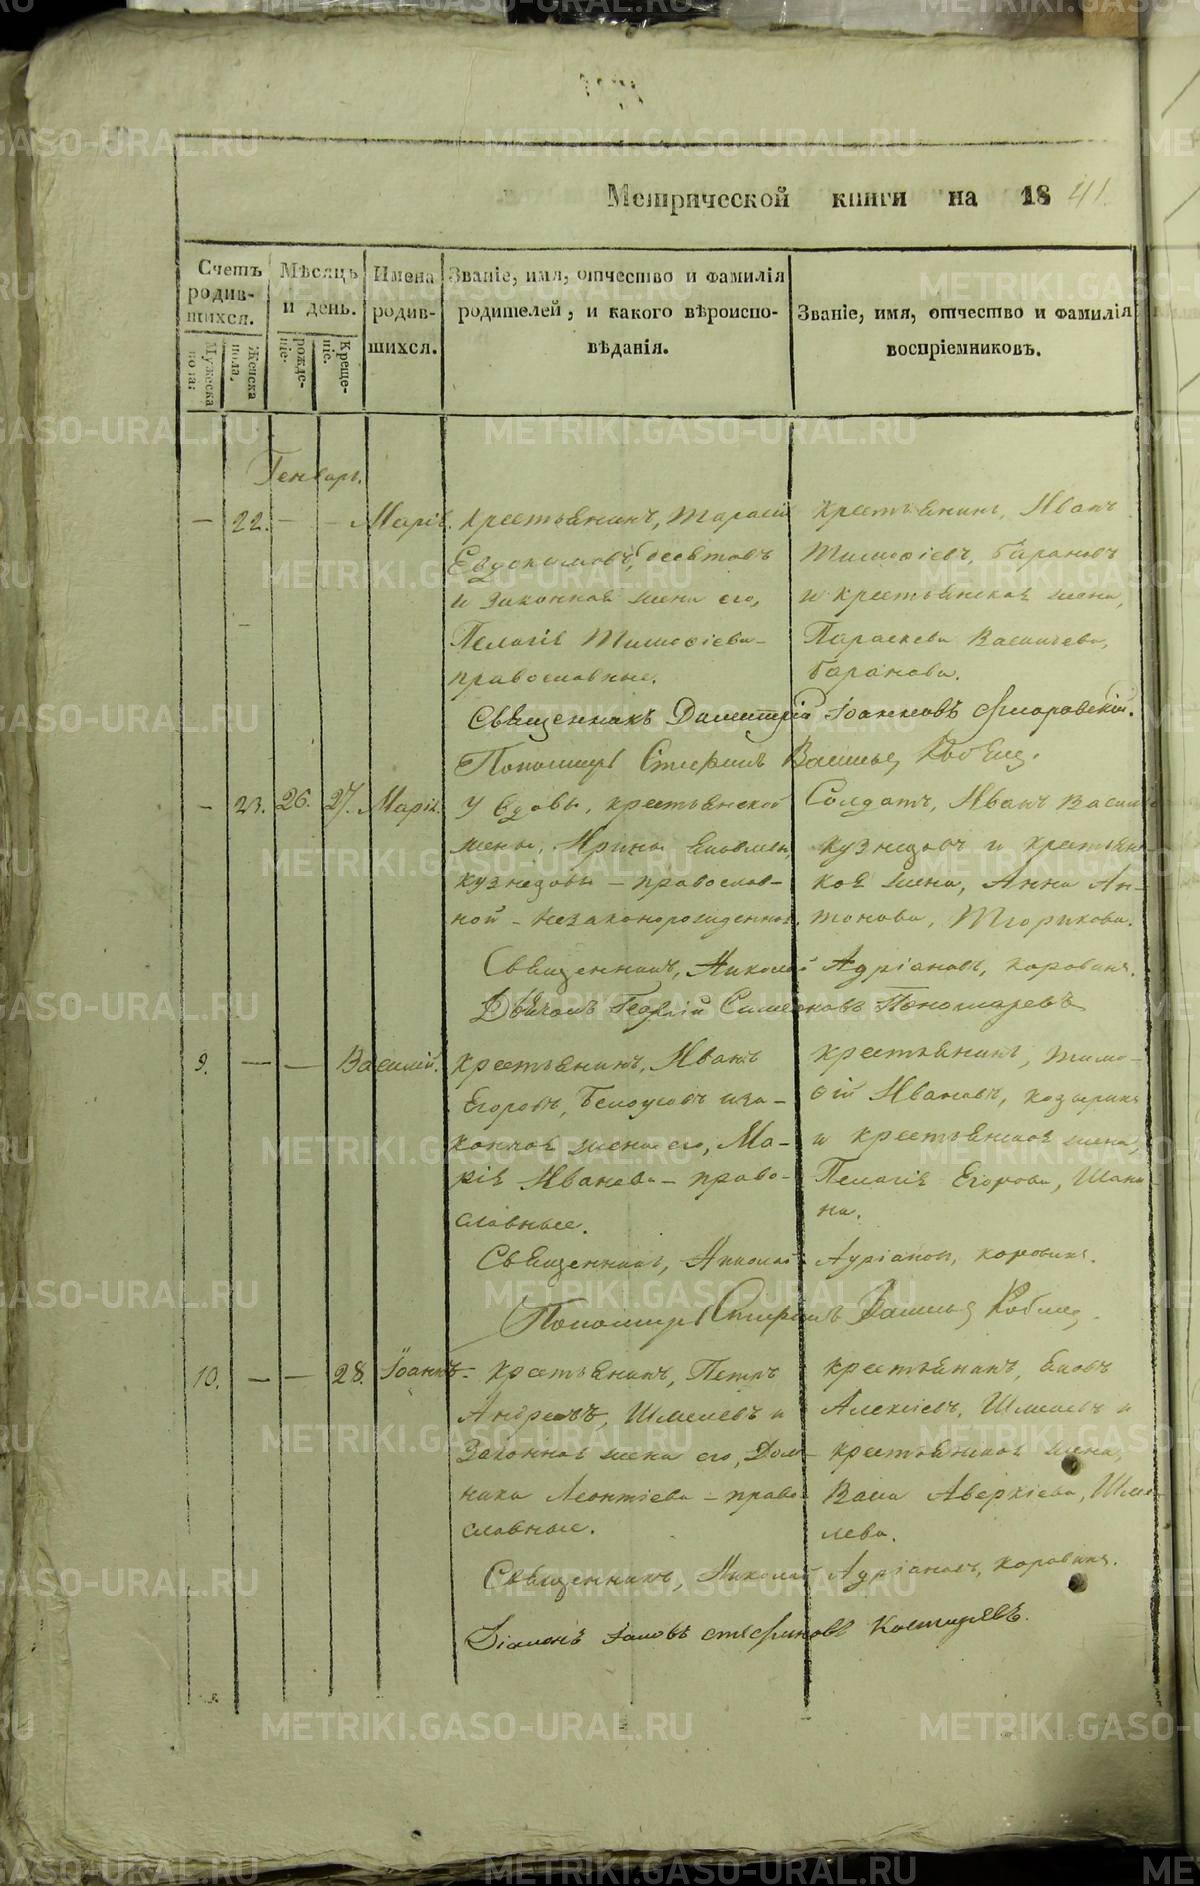 Метрической книги на 1841.
Счетъ родившихся.
Мѣсяцъ и день.
Имена родившихся.
Званіе, имя, отчество и фамилія родителей, и какого вѣроисповѣданія.
Званіе, имя, отчество и фамилія воспріемниковъ.
Мужеска пола.
Женска пола.
рожденіе.
Крещеніе.
Генварь.
— 22. — — Марія.
крестьянинъ, Тарасій
Евдокимовъ,
и законная жена его,
Пелагія Тимофіева —
православные.
крестьянинъ, Иванъ
Тимофіевъ, Барановъ
и крестьянская жена,
Параскева Васильева,
Баранова.
Священникъ Димитрій Іоанновъ Флоровскій.
Пономарь Стефанъ Васильевъ
— 23. 26. 27. Марія.
у вдовы, крестьянской
жены, Ирины Яковлевы,
кузнецовы — православ-
ной — незаконорожденная.
Солдатъ, Иванъ Василь
кузнецовъ и крестьян
кая жена, Анна Ан-
тонова,
Священникъ, Николай Адріановъ, коровинъ.
Дьячокъ Георгій Симеоновъ Пономаревъ
9. — — Василій.
крестьянинъ, Иванъ
Егоровъ, Белоусовъ и за-
конная жена его, Ма-
рія Иванова — право-
славные.
крестьянинъ, Тимо-
фій Ивановъ, козыринъ
и крестьянская жена,
Пелагія Егорова, Шани-
на.
Священникъ, Николай Адріановъ, коровинъ.
Пономарь Стефанъ Васильевъ
10. — — 28. Іоаннъ —
крестьянинъ, Петръ
Андреевъ, Шмелевъ и
законная жена его, Дом-
ника Леонтіева — право-
славные.
крестьянинъ, Яковъ
Алексіевъ, Шмелевъ и
крестьянская жена,
Васа Аверкіева, Шме-
лева.
Священникъ, Николай Адріановъ, коровинъ.
Діаконъ Іаковъ Стефановъ
METRIKI.GASO-URAL.RU